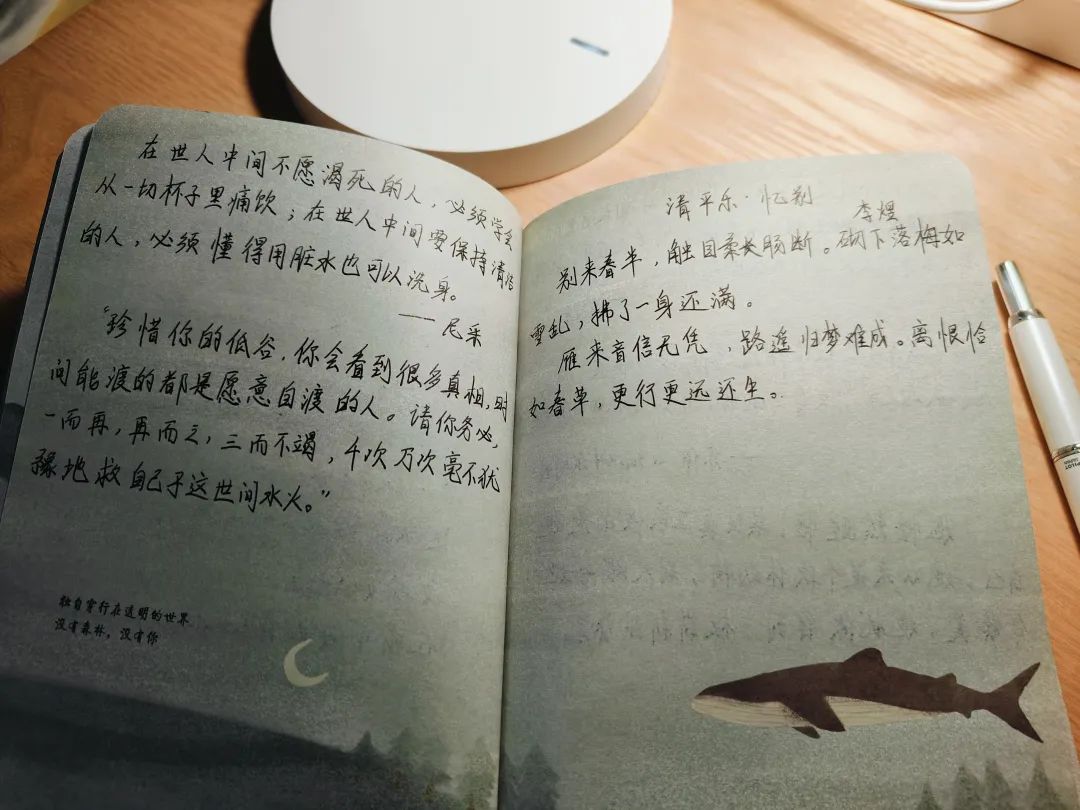 在世人中间不愿渴死的人，必须学会
从一切杯子里痛饮；在世人中间要保持清洁
的人，必须懂得用脏水也可以洗身。
——尼采
“珍惜你的低谷，你会看到很多真相，时
间能渡的都是愿意自渡的人。请你务必，
一而再，再而三，三而不竭，千次万次毫不犹
豫地救自己于这世间水火。”
独自穿行在透明的世界
没有森林，没有你
清平乐·忆别
李煜
别来春半，触目柔长肠断。砌下落梅如
雪乱，拂了一身还满。
雁来音信无凭，路遥归梦难成。离恨恰
如春草，更行更远还生。
PILOT
JAPAN